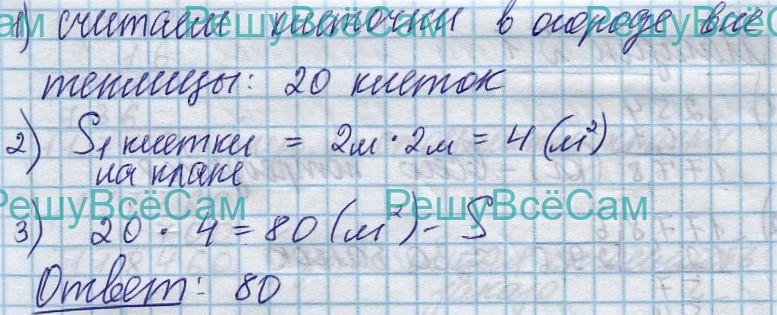 1) считаем клеточки в огороде вне
теплицы: 20 клеток
2) S₁ клетки = 2м · 2м = 4 (м²)
на плане
3) 20 · 4 = 80 (м²) – S
Ответ: 80
РешуВсёСам
РешуВсёСам
РешуВсёСам
РешуВсёСам